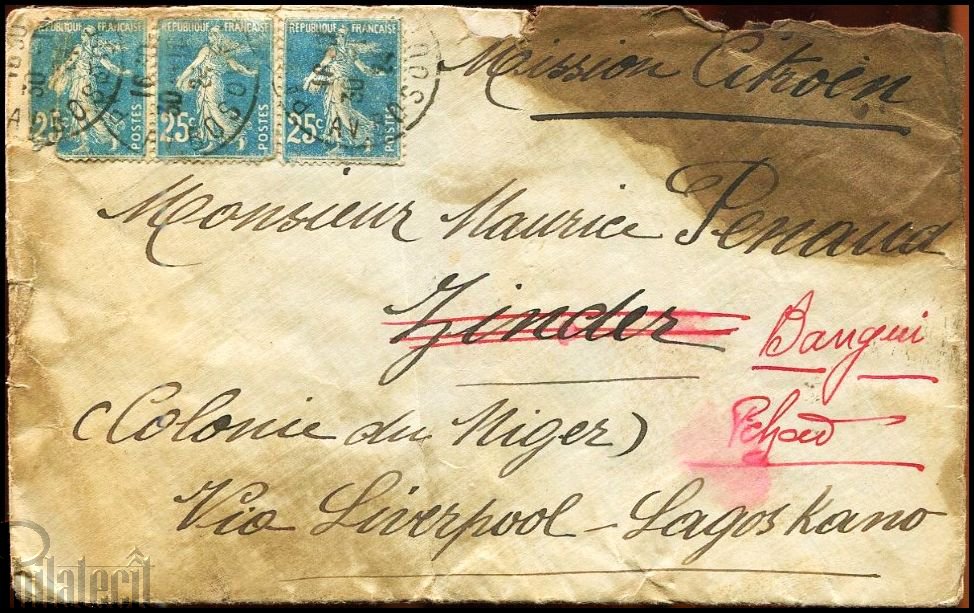 REPUBLIQUE FRANÇAISE REPUBLIQUE FRANÇAISE REPUBLIQUE FRANÇAISE
25c POSTES 25c POSTES 25c POSTES
Mission Citroën
Monsieur Maurice Penaud
Zinder
Bangui
(Colonie du Niger)
Tchad
Via Liverpool - Lagos Kano
Philatecit